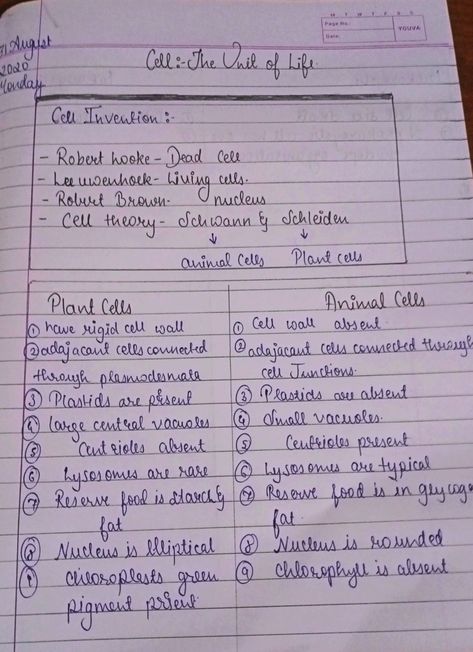 M T W T F S S
Page No.:
Date:
YOUVA
31 August
2020
Monday
Cell:- The Unit of Life.
Cell Invention:-
- Robert Hooke - Dead Cell
- Leeuwenhoek - Living cells.
- Robert Brown - nucleus
- Cell theory - Schwann & Schleiden
↓ ↓
animal cells Plant cells
Plant Cells
① have rigid cell wall
② adajacant cells connected
through plasmodesmata
③ Plastids are present
④ large central vacuoles
⑤ Centrioles absent
⑥ Lysosomes are rare
⑦ Reserve food is starch &
fat
⑧ Nucleus is Elliptical
⑨ chloroplasts green
pigment prient.
Animal Cells
① Cell wall absent
② adajacant cells connected through
cell Junctions.
③ Plastids are absent
④ Small vacuoles.
⑤ Centrioles present
⑥ Lysosomes are typical
⑦ Reserve food is in glycoge
fat.
⑧ Nucleus is rounded
⑨ Chlorophyll is absent